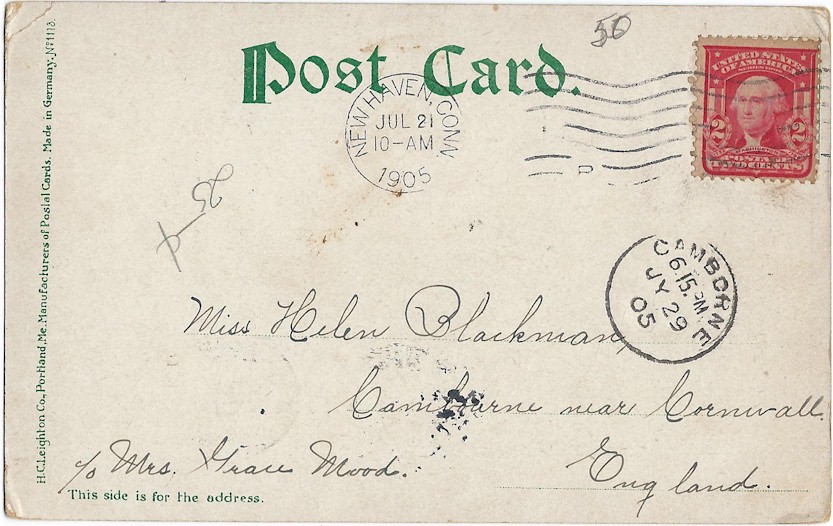 50
Post Card.
UNITED STATES
OF AMERICA
2 2
POSTAGE
TWO CENTS
NEW HAVEN, CONN
JUL 21
10-AM
1905
D
CAMBORNE
6.15.PM
JY 29
05
Miss Helen Blackman,
Cambourne near Cornwall.
c/o Mrs. Grace Mood.
England.
This side is for the address.
H.C.Leighton Co., Portland, Me. Manufacturers of Postal Cards. Made in Germany. No 1113.